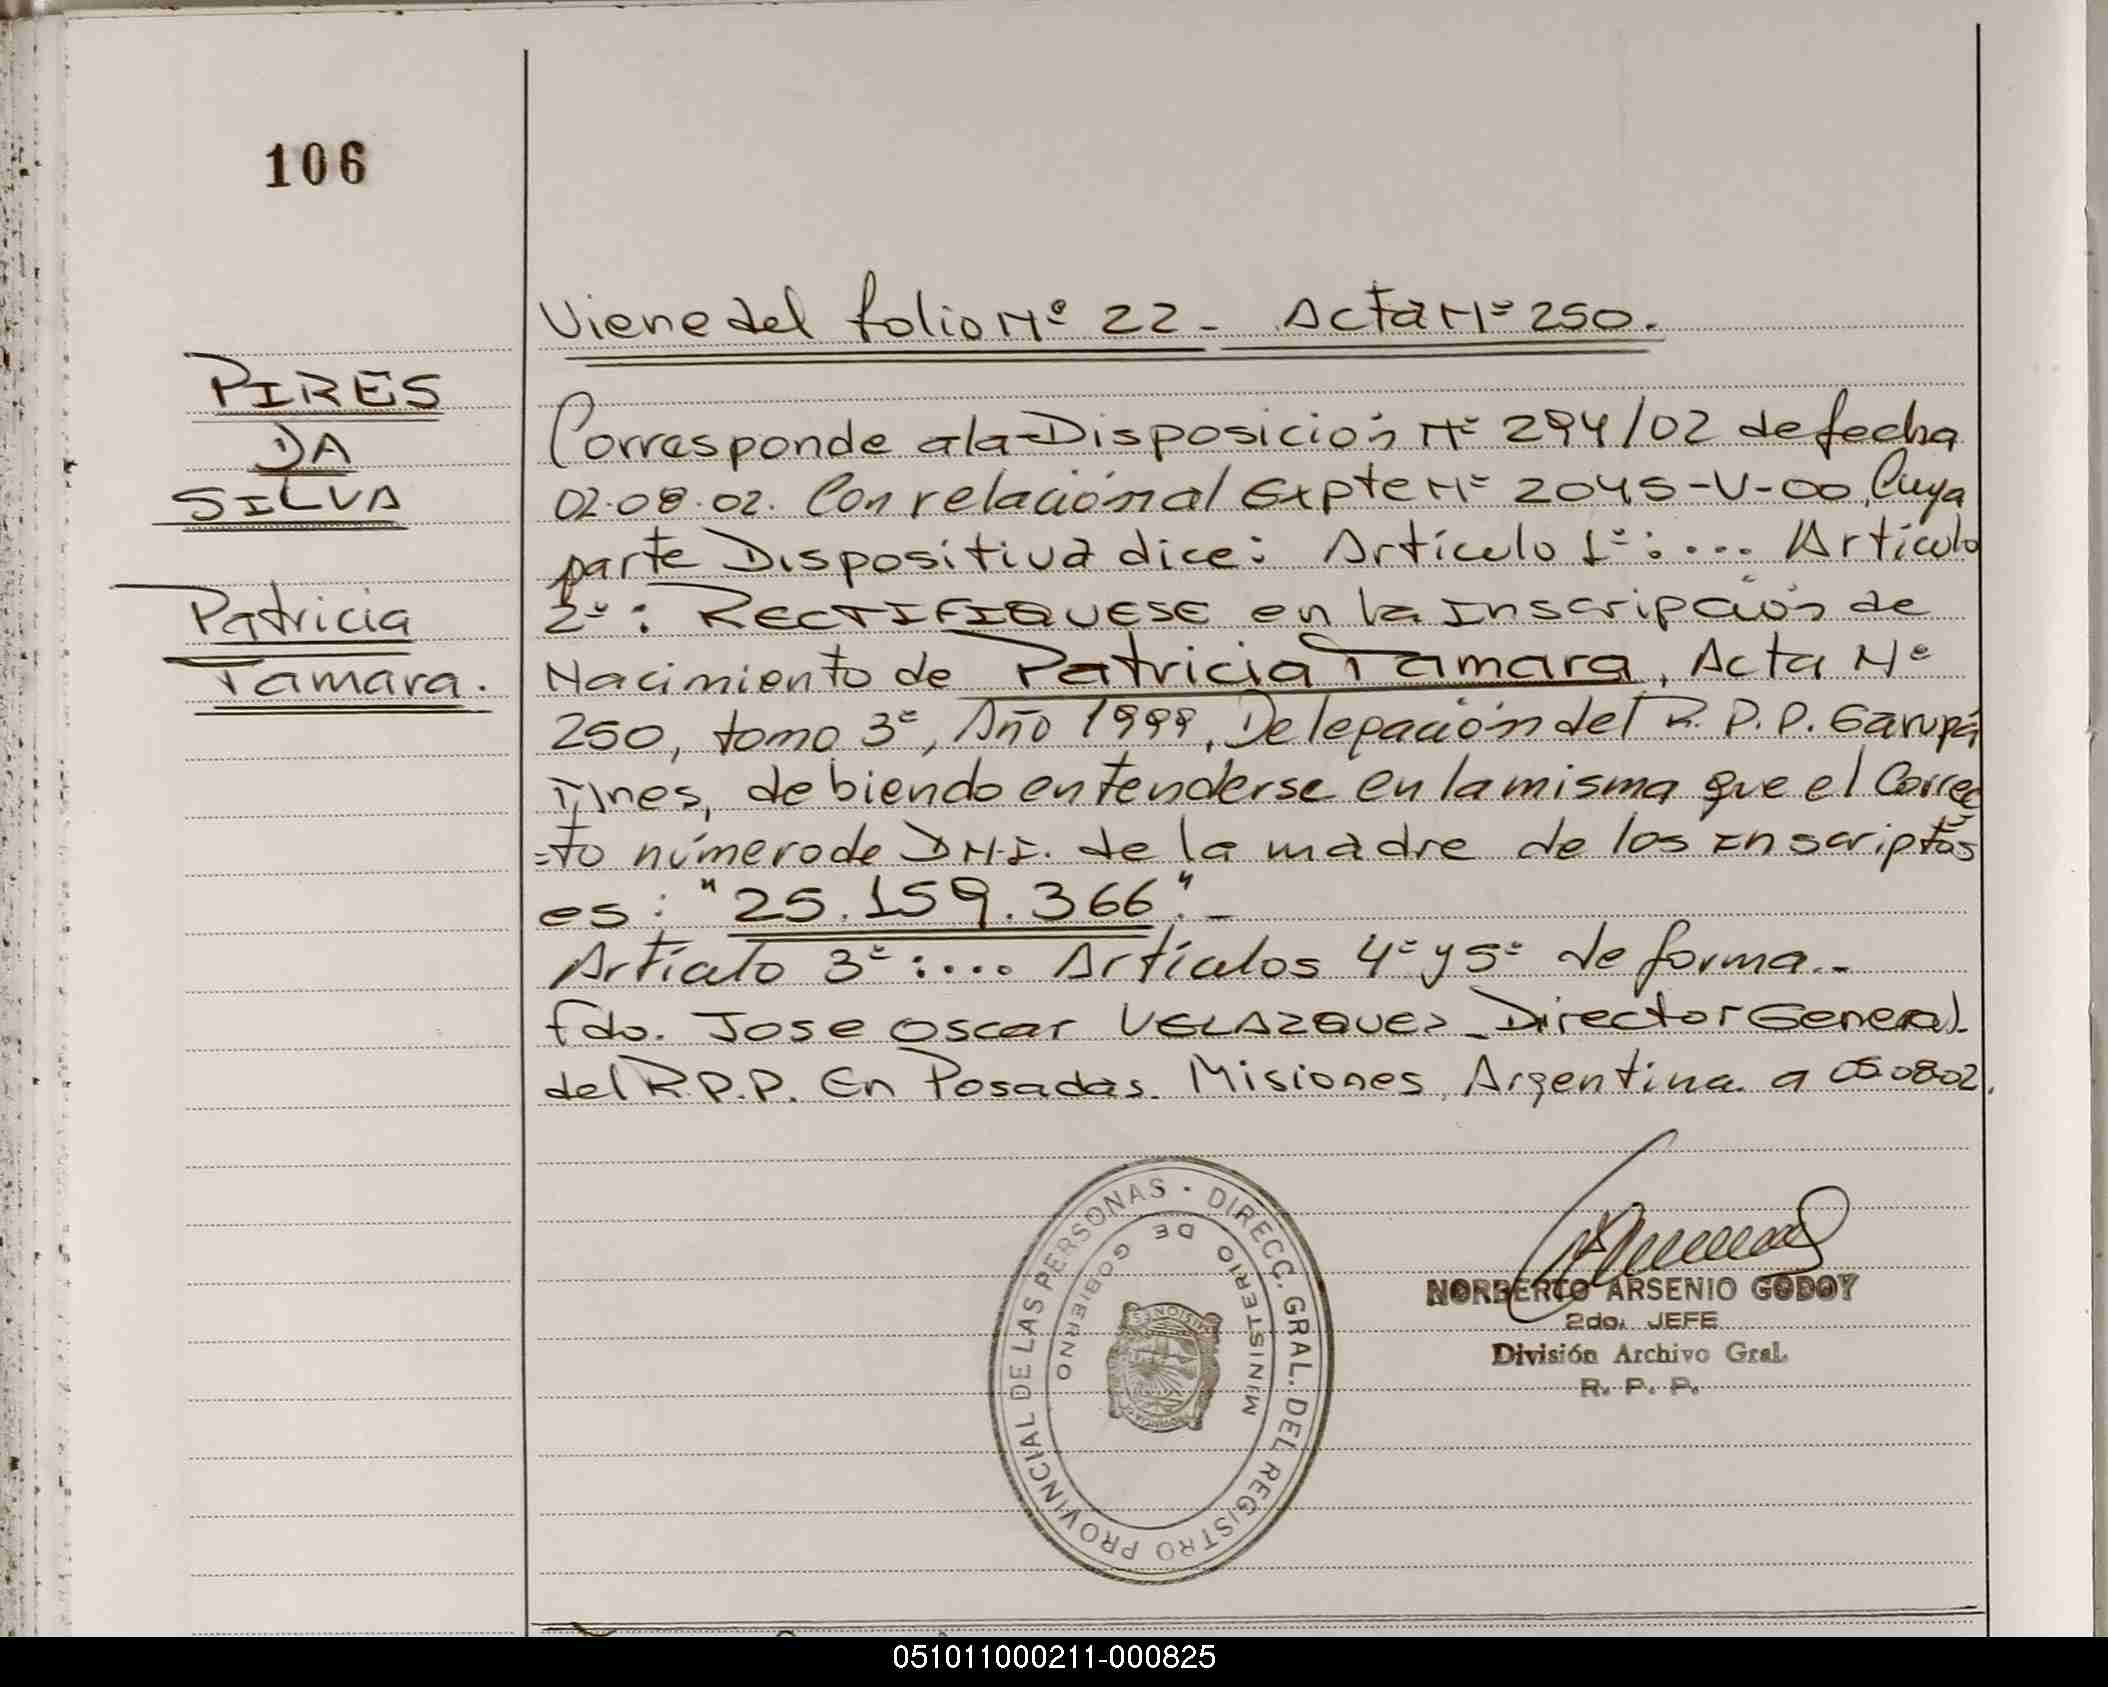 106
Viene del folio Nº 22 - Acta Nº 250.
PIRES
DA
SILVA
Patricia
Tamara.
Corresponde a la Disposición Nº 294/02 de fecha
02.08.02. Con relación al Expte Nº 2045-V-00, Cuya
parte Dispositiva dice: Artículo 1º: ... Artículo
2º: RECTIFIQUESE en la Inscripción de
Nacimiento de Patricia Tamara, Acta Nº
250, tomo 3º, Año 1999, Delegación del R.P.P. Garupá
Mnes, debiendo entenderse en la misma que el Correc
=to número de D.N.I. de la madre de los Inscriptos
es: "25.159.366".-
Artículo 3º: ... Artículos 4º y 5º de forma.-
fdo. Jose Oscar VELAZQUEZ - Director General
del R.P.P. En Posadas. Misiones, Argentina a 05.08.02.
DIRECC. GRAL. DEL REGISTRO PROVINCIAL DE LAS PERSONAS •
MINISTERIO DE GOBIERNO
MISIONES
NORBERTO ARSENIO GODOY
2do. JEFE
División Archivo Gral.
R. P. P.
051011000211-000825